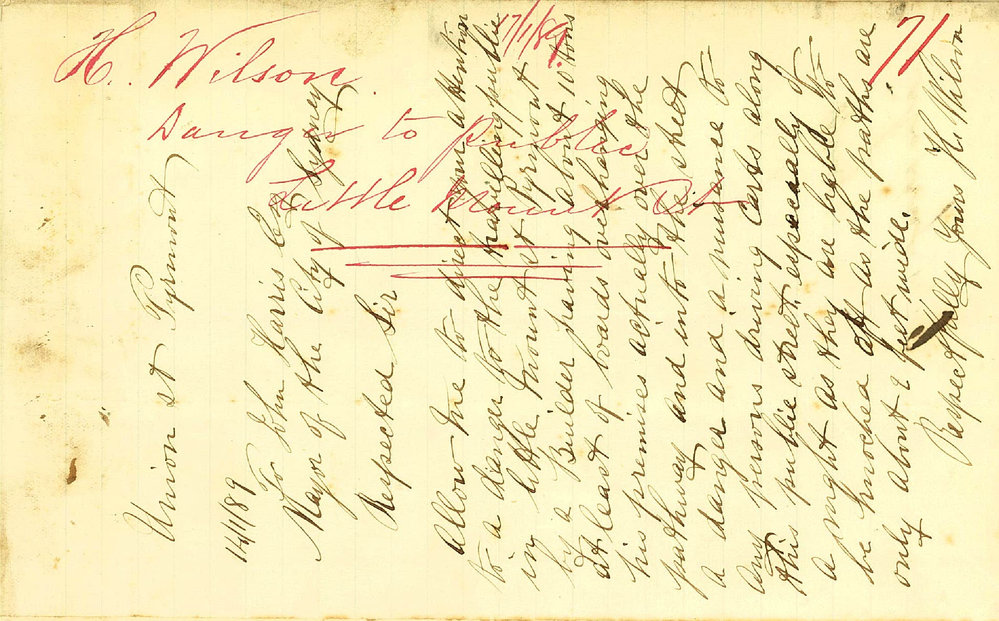 H. Wilson
Danger to public
Little Mount St
17/1/89
71
Union st Pyrmont
14/1/89
To John Harris Esq
Mayor of the City of Sydney
Respected Sir
Allow me to direct your attention
to a danger to the travelling public
in little Mount st Pyrmont
by a Builder having about 10 tons
at least of boards overhanging
his premises actually over the
pathway and into the street
a danger and a nuisance to
any persons driving carts along
this public street, especially of
a night as they are liable to
be knocked off as the paths are
only about 2 feet wide.
Respectfully Yours H. Wilson